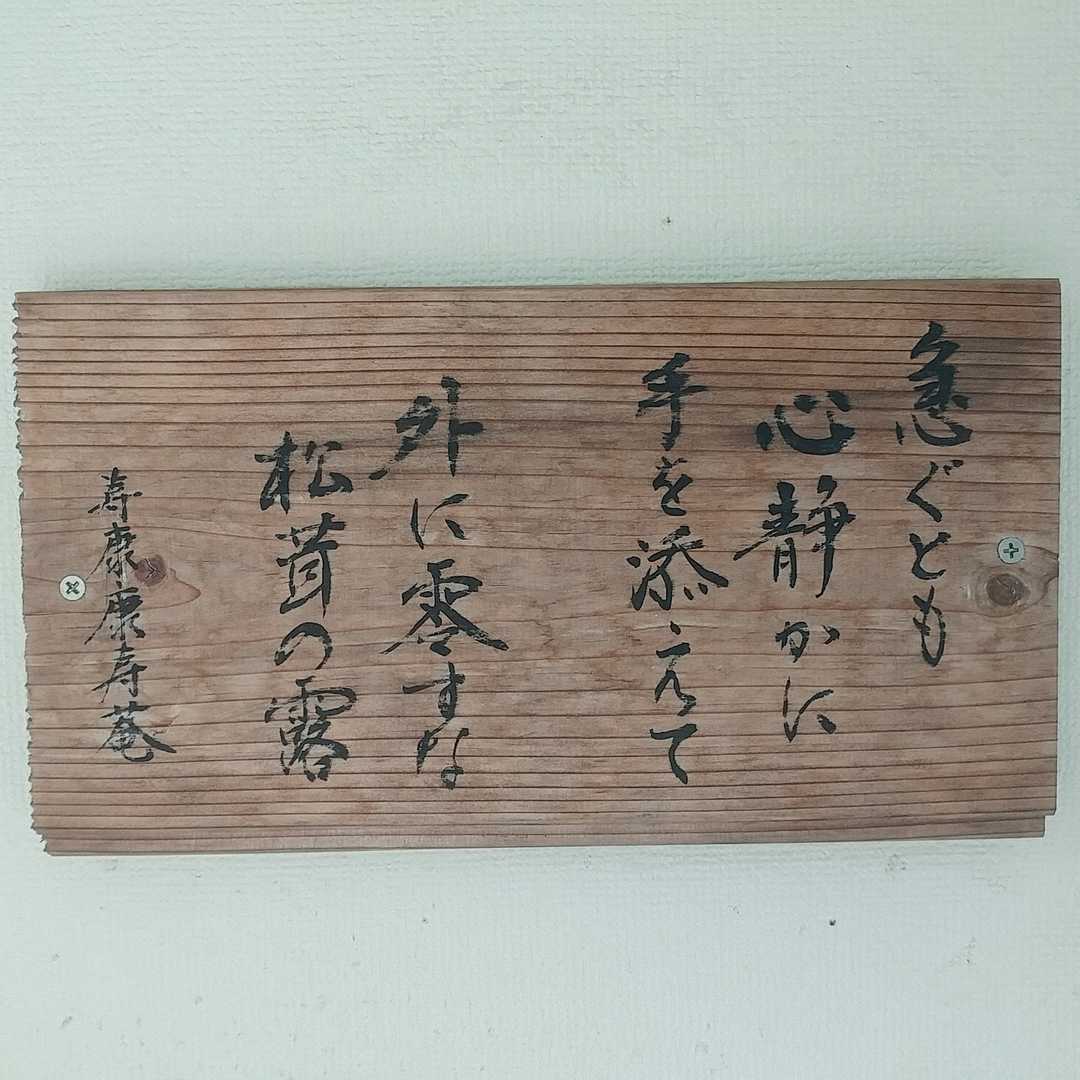 急ぐとも
心静かに
手を添えて
外に零すな
松茸の露
寿康康寿菴